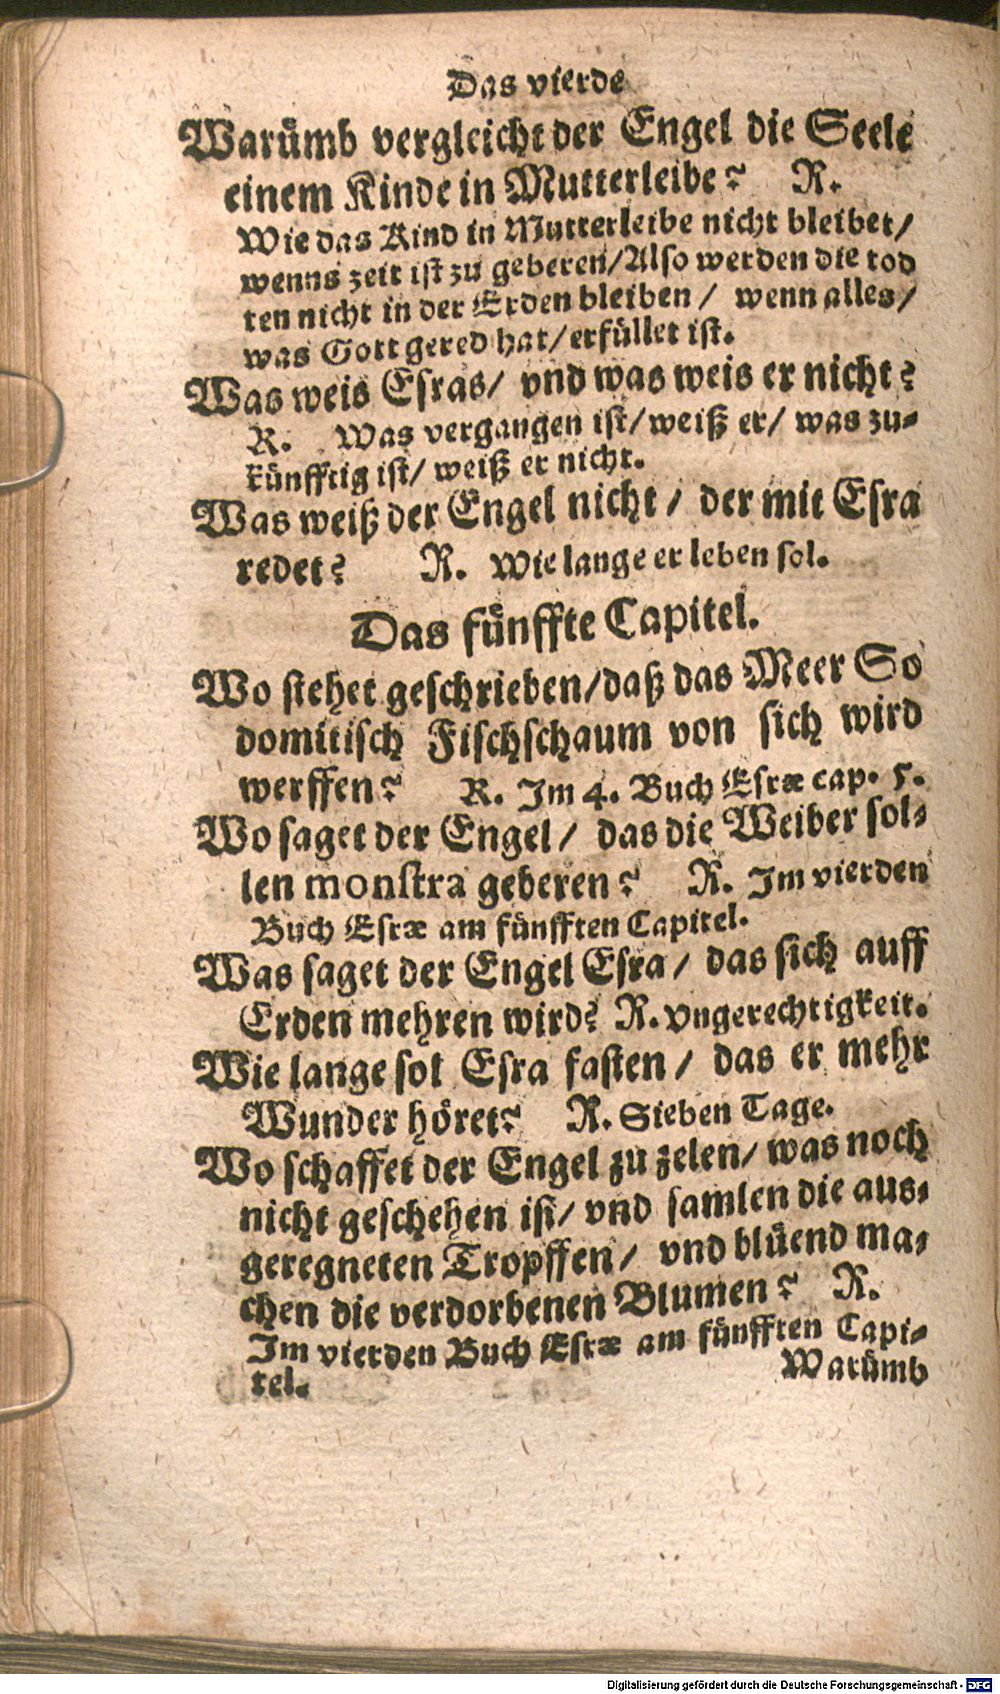 Das vierde
Warůmb vergleicht der Engel die Seele
einem Kinde in Mutterleibe? R.
Wie das Kind in Mutterleibe nicht bleibet/
wenns zeit ist zu geberen/Also werden die tod
ten nicht in der Erden bleiben/ wenn alles/
was Gott gered hat/erfüllet ist.
Was weis Esras/ vnd was weis er nicht?
R. Was vergangen ist/weiß er/ was zu-
künfftig ist/ weiß er nicht.
Was weiß der Engel nicht/ der mit Esra
redet? R. Wie lange er leben sol.
Das fünffte Capitel.
Wo stehet geschrieben/daß das Meer So
domitisch Fischschaum von sich wird
werffen? R. Im 4. Buch Esræ cap. 5.
Wo saget der Engel/ das die Weiber sol-
len monstra geberen? R. Im vierden
Buch Esræ am fünfften Capitel.
Was saget der Engel Esra/ das sich auff
Erden mehren wird? R. Vngerechtigkeit.
Wie lange sol Esra fasten/ das er mehr
Wunder höret? R. Sieben Tage.
Wo schaffet der Engel zu zelen/ was noch
nicht geschehen ist/ vnd samlen die aus-
geregneten Tropffen/ vnd blüend ma-
chen die verdorbenen Blumen? R.
Im vierden Buch Esræ am fünfften Capi-
tel.
Warůmb
Digitalisierung gefördert durch die Deutsche Forschungsgemeinschaft - DFG